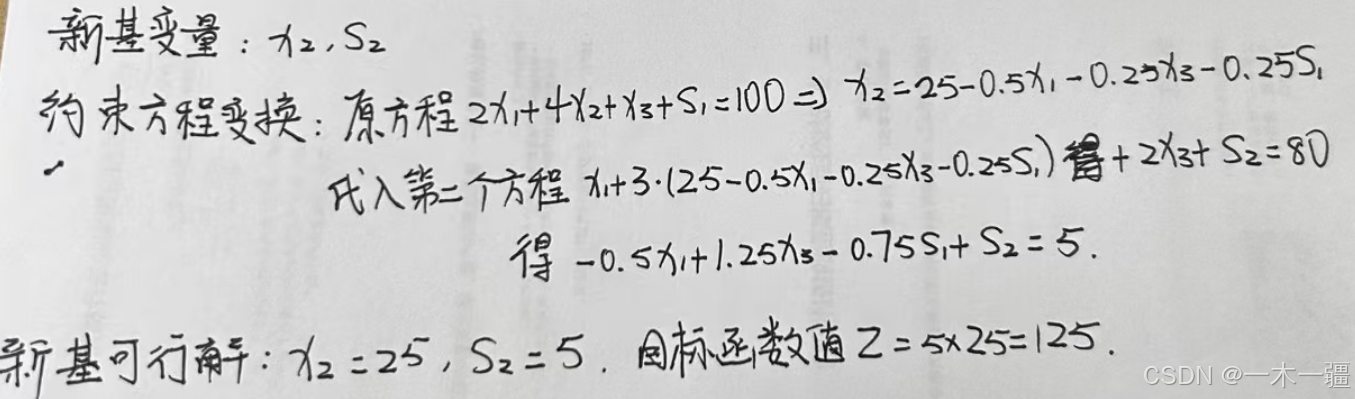 新基变量：x₂，S₂
约束方程变换：原方程 2x₁+4x₂+x₃+S₁=100 ⇒ x₂=25-0.5x₁-0.25x₃-0.25S₁
代入第二个方程 x₁+3·(25-0.5x₁-0.25x₃-0.25S₁)+2x₃+S₂=80
得 -0.5x₁+1.25x₃-0.75S₁+S₂=5.
新基可行解：x₂=25，S₂=5. 目标函数值 Z=5×25=125.
CSDN @一木一疆